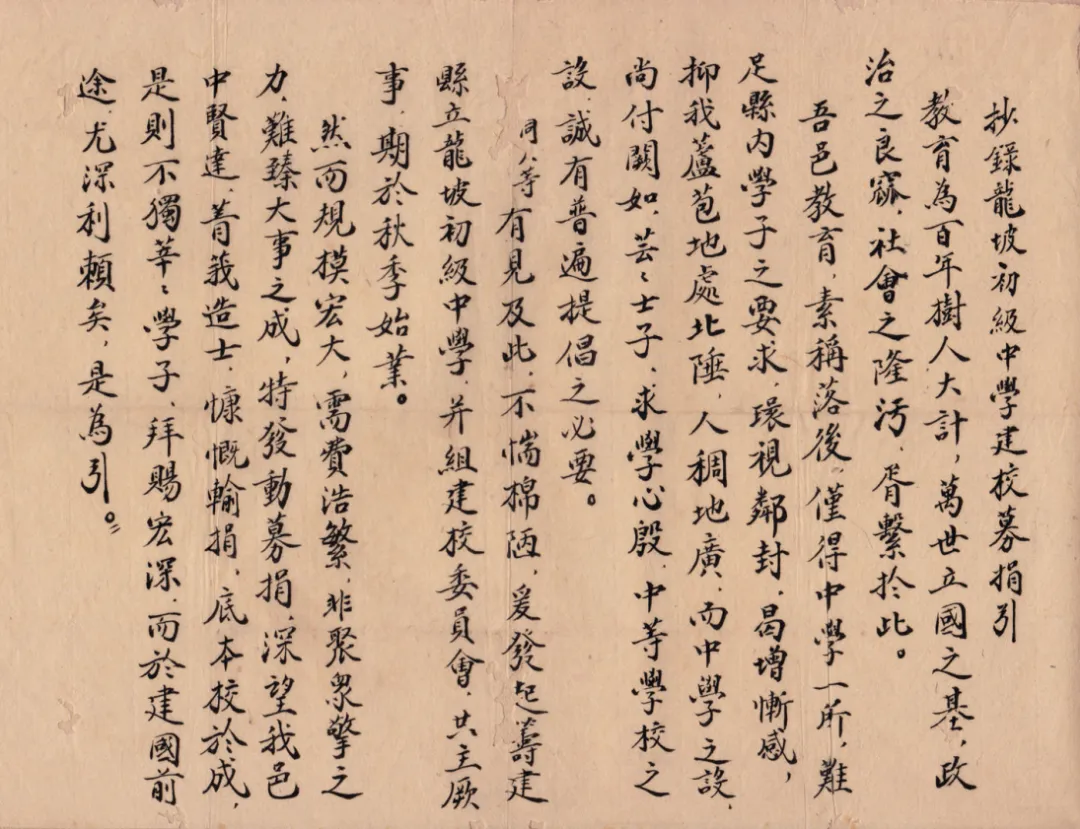 抄錄龍坡初級中學建校募捐引
教育為百年樹人大計，萬世立國之基，政
治之良窳，社會之隆污，胥繫於此。
吾邑教育，素稱落後，僅得中學一所，難
足縣內學子之要求，環視鄰封，曷增慚感，
抑我蘆苞地處北陲，人稠地廣，而中學之設，
尚付闕如，芸〻士子，求學心殷，中等學校之
設，誠有普遍提倡之必要。
同人等有見及此，不惴棉陋，爰發起籌建
縣立龍坡初級中學，并組建校委員會，共主厥
事，期於秋季始業。
然而規模宏大，需費浩繁，非聚衆擎之
力，難臻大事之成，特發動募捐，深望我邑
中賢達，菁莪造士，慷慨輸捐，底本校於成，
是則不獨莘〻學子，拜賜宏深，而於建國前
途，尤深利賴矣，是為引。